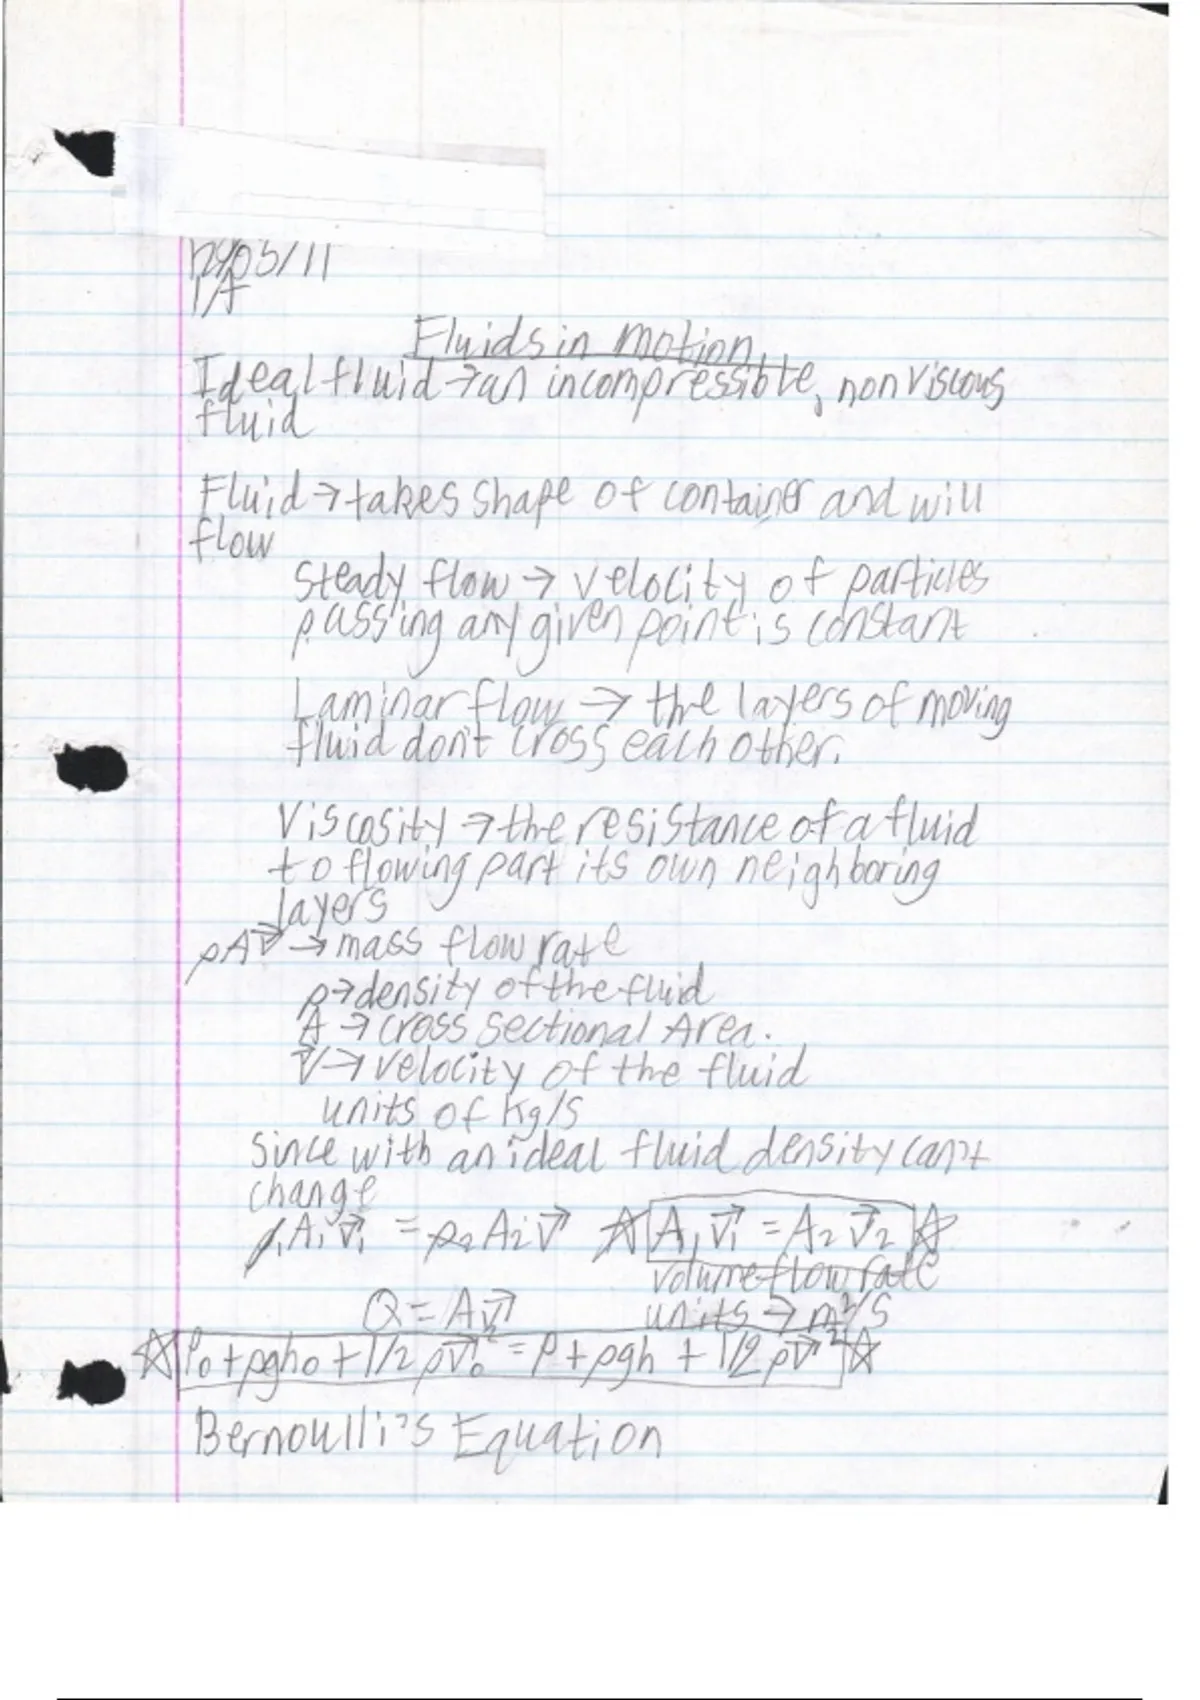 Fluids in motion
Ideal fluid → an incompressible, nonviscous
fluid
Fluid → takes shape of container and will
flow
Steady flow → velocity of particles
passing any given point is constant
Laminar flow → the layers of moving
fluid don't cross each other.
Viscosity → the resistance of a fluid
to flowing part its own neighboring
layers
ρAv⃗ → mass flow rate
ρ → density of the fluid
A → cross sectional Area.
v⃗ → velocity of the fluid
units of kg/s
Since with an ideal fluid density can't
change
ρ₁A₁v⃗₁ = ρ₂A₂v⃗ ☆ A₁v⃗₁ = A₂v⃗₂ ☆
volume flow rate
Q = Av⃗ units →
☆ P₀ + ρgh₀ + 1/2 ρv⃗₀² = P + ρgh + 1/2 ρv⃗² ☆
Bernoulli's Equation